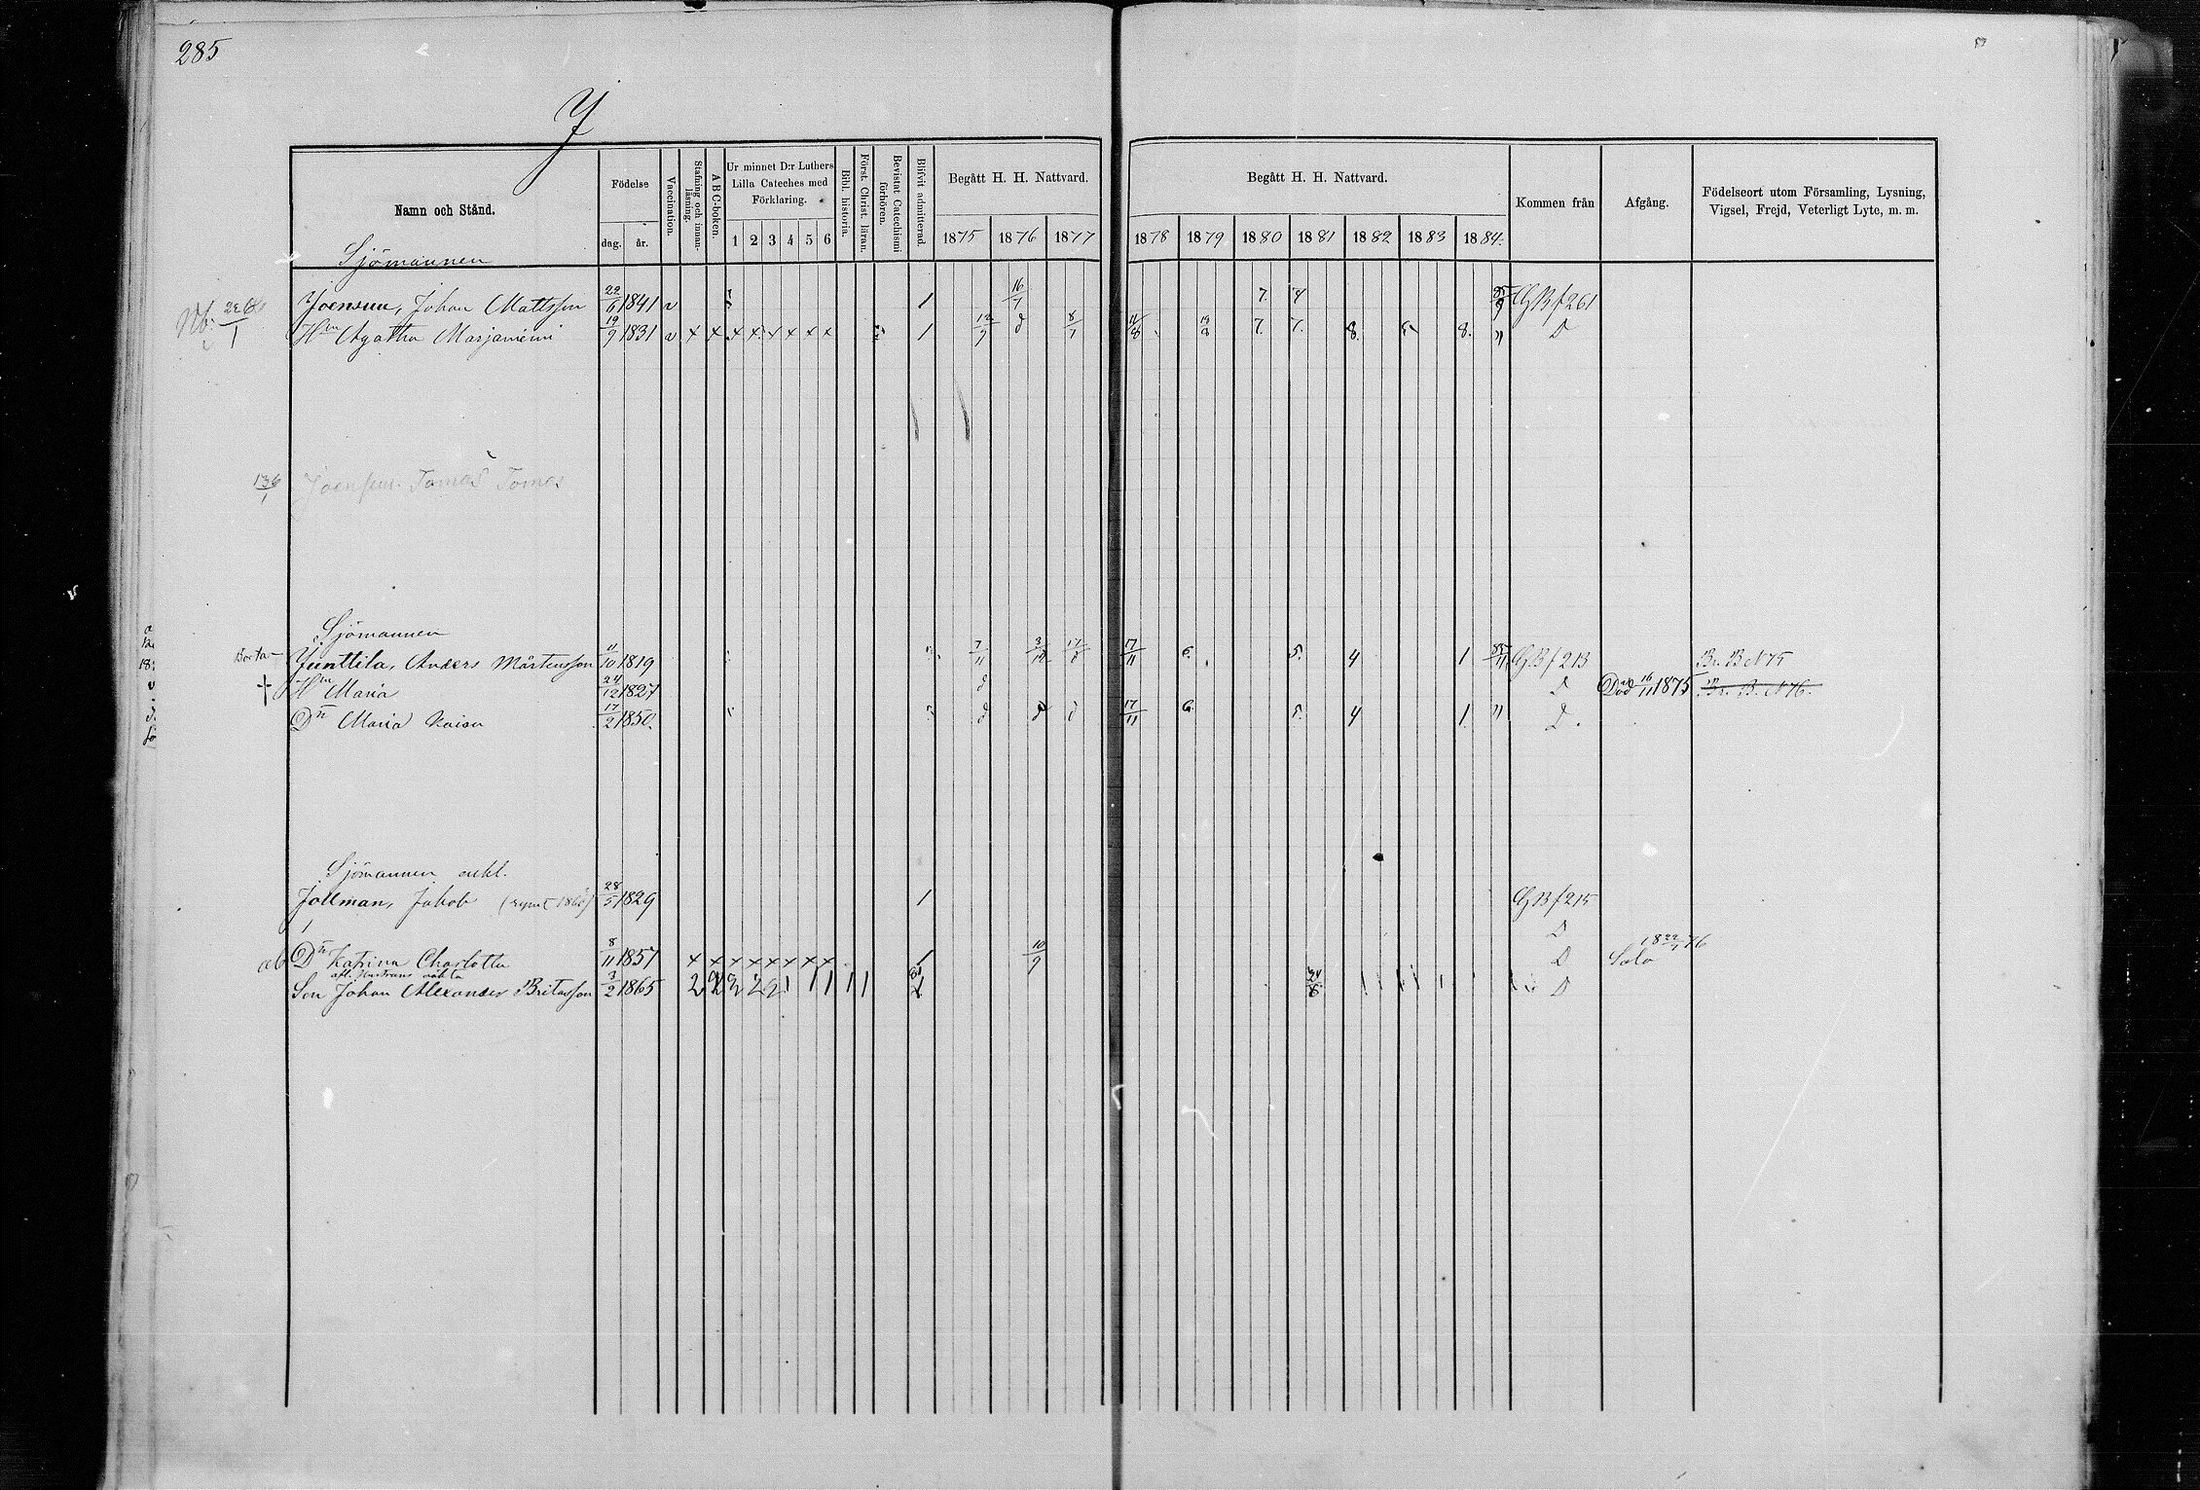 285
J
Namn och Stånd.
Födelse
dag. år.
Vaccination.
Stafning och innanläsning.
ABC-boken.
Ur minnet D:r Luthers Lilla Cateches med Förklaring.
1 2 3 4 5 6
Bibl. historia.
Först. Christ. läran.
Bevistat Catechismi förhören.
Blifvit admitterad.
Begått H. H. Nattvard.
1875 1876 1877
Begått H. H. Nattvard.
1878 1879 1880 1881 1882 1883 1884.
Kommen från
Afgång.
Födelseort utom Församling, Lysning, Vigsel, Frejd, Veterligt Lyte, m. m.
Sjömannen
Joensuu, Johan Mattsson 22/6 1841 v 1 16/7 7. 7 GB f 261
Hn Agatha Marjaniemi 19/9 1831 v x x x x x x x x 1 7. 7. 8. 8. D
136/1 Joensuu Tomas Tomas
Sjömannen
Borta Junttila, Anders Mårtensson 11/10 1819 7/11 17/11 6. 5. 4 1 GB f 213 Br. B N 75
† Hn Maria 24/12 1827 d D Död 16/11 1875 Br. B. N 76.
Dn Maria Kaisa 17/2 1850. d d d 17/11 6. 5. 4 1 " D.
Sjömannen enkl.
Jollman, Jakob (rymt 1868) 28/5 1829 1 GB f 215
D
ab Dn Katrina Charlotta 8/11 1857 x x x x x x x x 10/9 D Salo 18 22/1 76
afl. Hustruns oäkta
Son Johan Alexander Britasson 3/2 1865 2 2 2 2 2 1 1 1 1 1 24/6 D